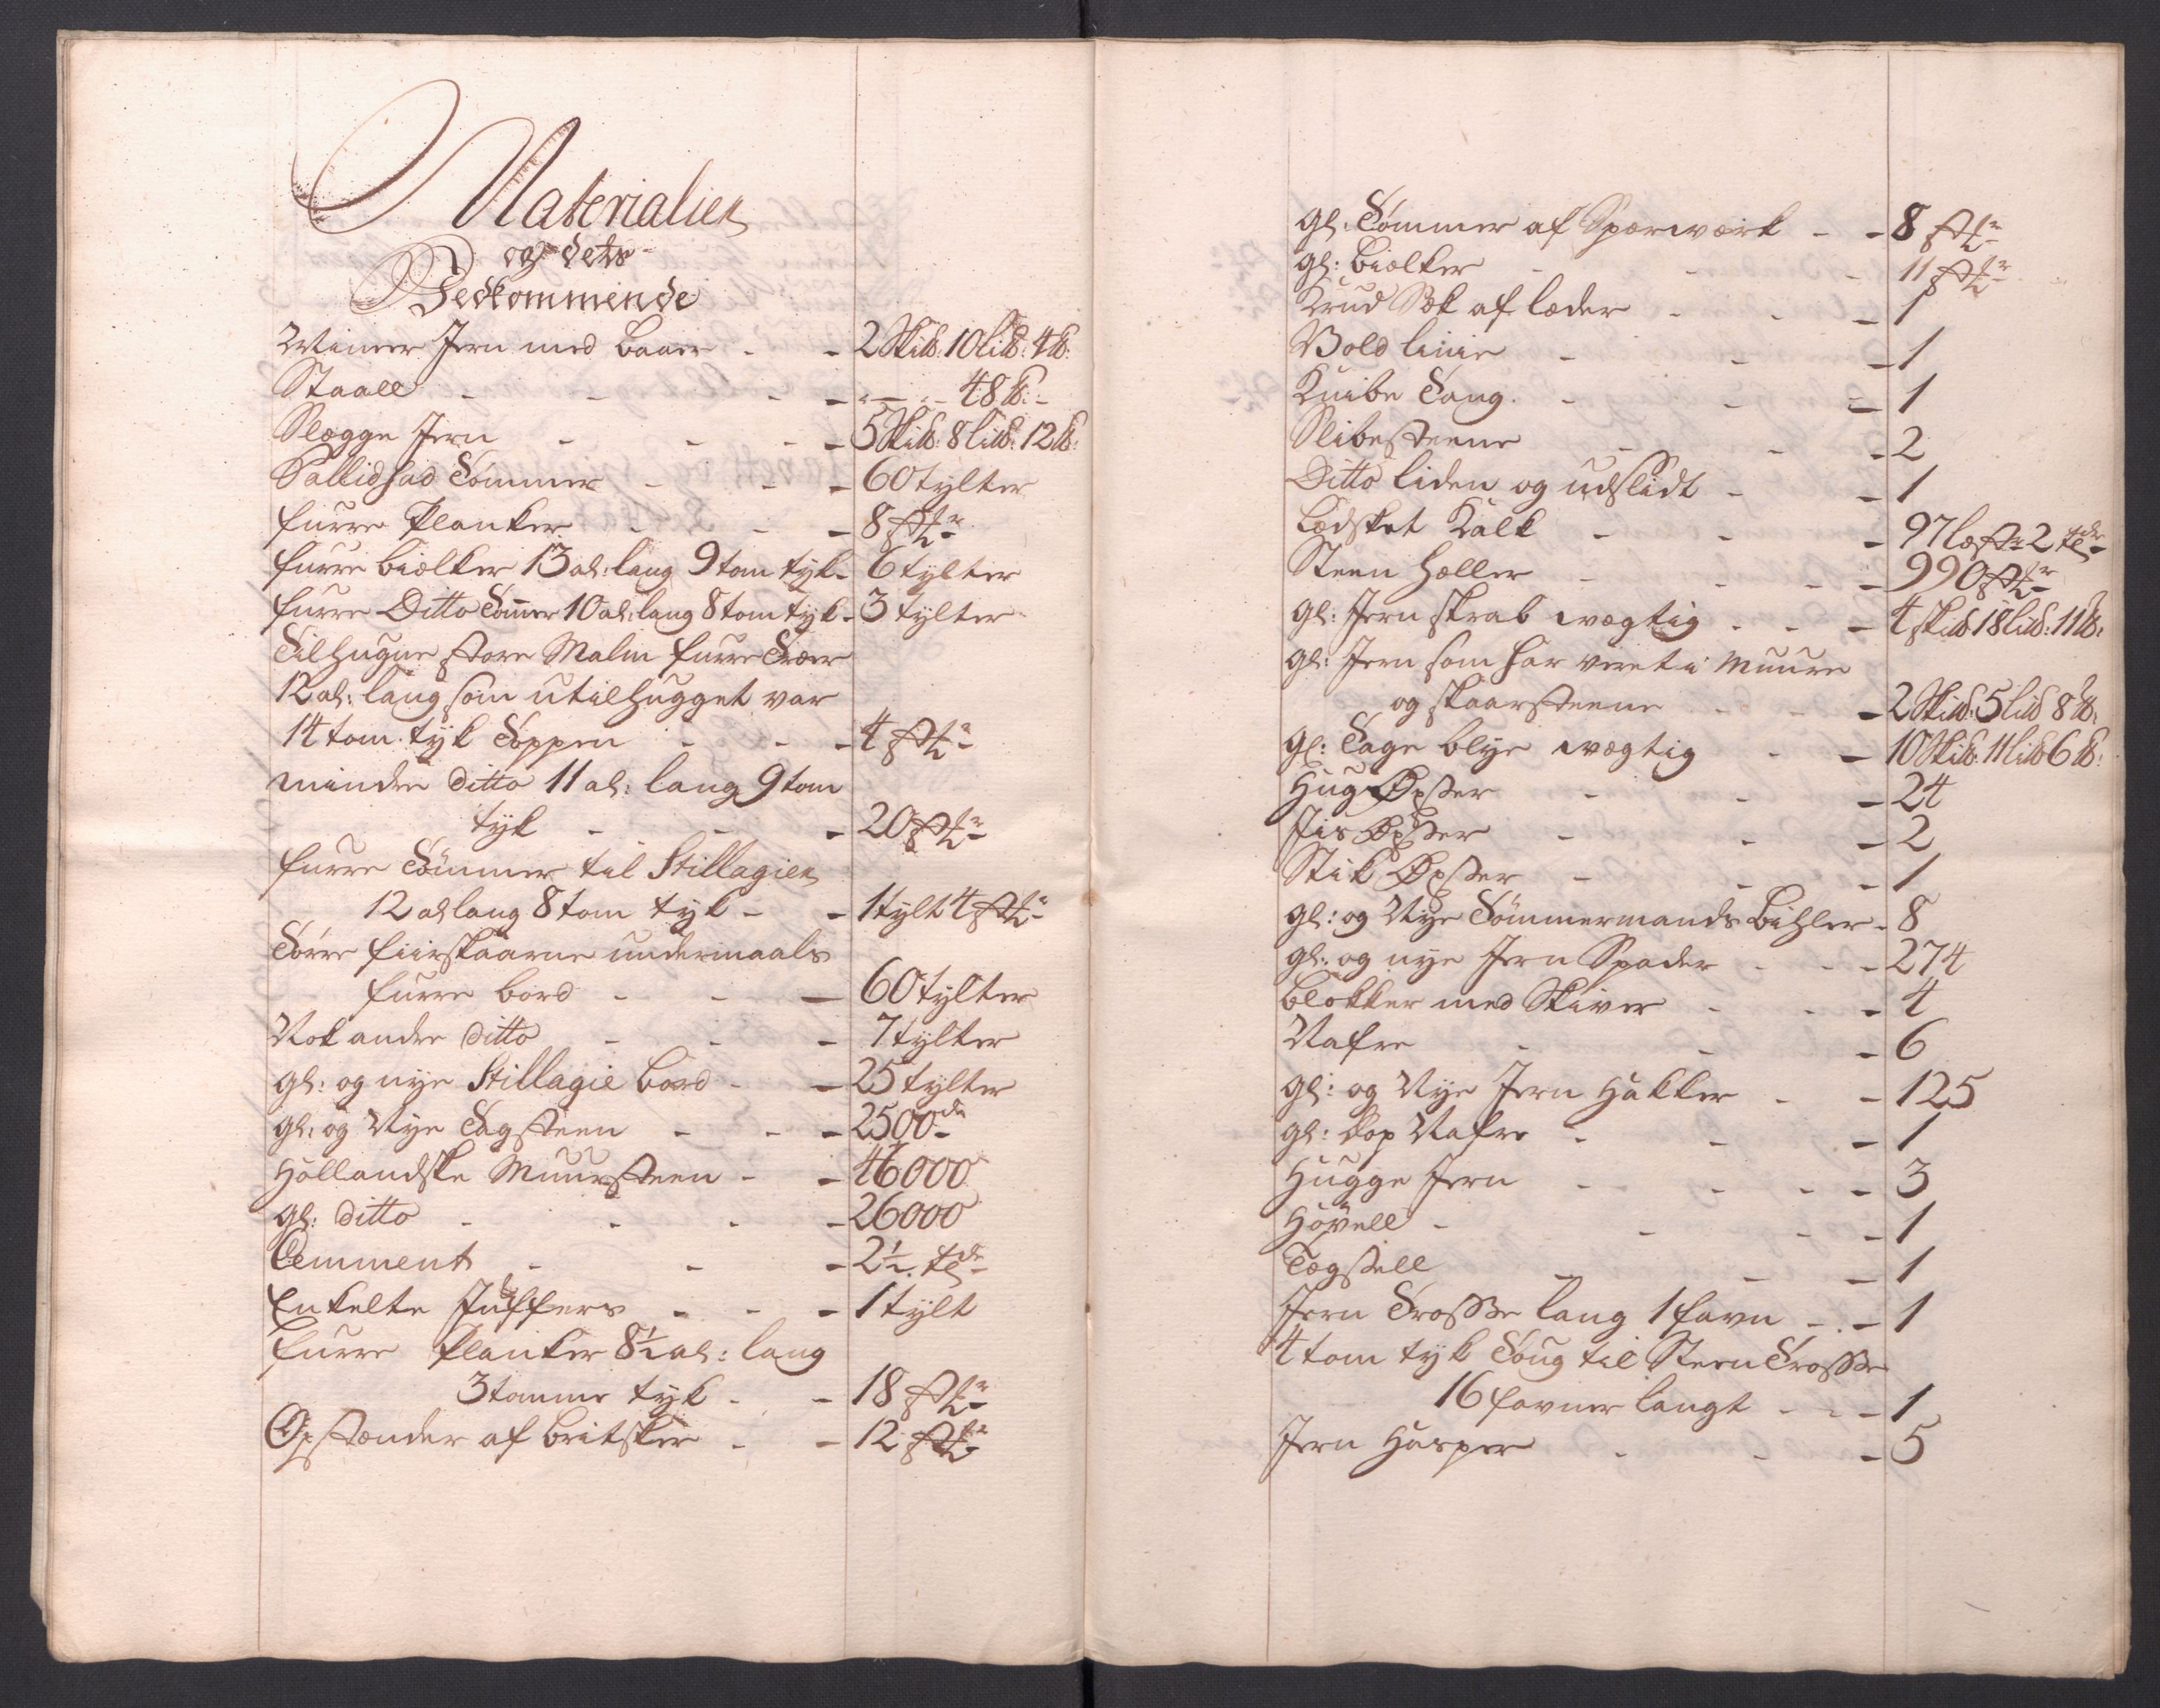 Materialier
og dets
Vedkommende
Winner Jern med baaer - - 2 Skib: 10 lib: 4 lb:
Staall - - - 48 lb:
Slegge Jern - - - 5 Skib: 8 lib: 12 lb:
Tømmer - - 60 tylter
furre Planker - - 8 stkr
furre bielker 13 al: lang 9 tom tyk - 6 tylter
furre Ditto Tømmer 10 al: lang 8 tom tyk - 3 tylter
Tilhugne store Malm furre Træer
12 al: lang som utilhugget var
14 tom tyk Toppen - - 4 stkr
mindre ditto 11 al: lang 9 tom
tyk - - - 20 stkr
furre Tømmer til Stillagier
12 al lang 8 tom tyk - - 1 tylt 4 stkr
Tørre fiirskaarne undermaals
furre bord - - - 60 tylter
Nok andre ditto - - - 7 tylter
gl: og nye Stillagie bord - - 25 tylter
gl: og Nye Tagsteen - - - 2500 de
Hollandske Muursteen - - 46000
gl: ditto - - - - 26000
Cemment - - - 2 1/2 tdr
Enkelte Juffers - - - 1 tylt
furre Planker 8 1/2 al: lang
3 tomme tyk - - 18 stkr
Opstander af britsker - - 12 stkr
gl: Tømmer af Sperwerk - - 8 stkr
gl: bielker - - - 11 stkr
Krud Sek af læder - - - 1
Bold linie - - - 1
Knibe Tang - - - 1
Slibesteene - - - 2
Ditto liden og udslidt - - 1
Ledsket Kalk - - - 97 lester 2 tdr
Steen Heller - - - 990 stkr
gl: Jern skrab wegtig - - - 4 skib 18 lib: 11 lb:
gl: Jern som har veret i Muure
og skaarsteene - - - 2 Skib: 5 lib 8 lb:
gl: Tage blye wegtig - - 10 Skib: 11 lib 6 lb:
Hug Øxser - - - 24
Jis Øxser - - - 2
Stik Øxser - - - 1
gl: og Nye Tømmermands Bihler - 8
gl: og nye Jern Spader - - - 274
blokker med Skiver - - - 4
Nafre - - - 6
gl: og Nye Jern Hakker - - 125
gl: Nafre - - - 1
Hugge Jern - - - - 3
Høvell - - - - 1
1
Jern Trosse lang 1 favn - - 1
4 tom tyk Toug til Steen Trosse
16 favner langt - - - 1
Jern Hasper - - - 5